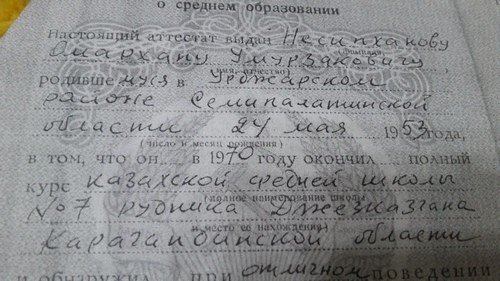 о среднем образовании
Настоящий аттестат выдан Несипханову
(фамилия,
Омархану Умурзаковичу
имя, отчество)
родившемуся в Урджарском
районе Семипалатинской
области 24 мая 1953 года,
(число и месяц рождения)
в том, что он в 1970 году окончил полный
курс Казахской средней школы
(полное наименование школы
№7 рудника Джезказгана
и место ее нахождения)
Карагандинской области
и обнаружил при отличном поведении